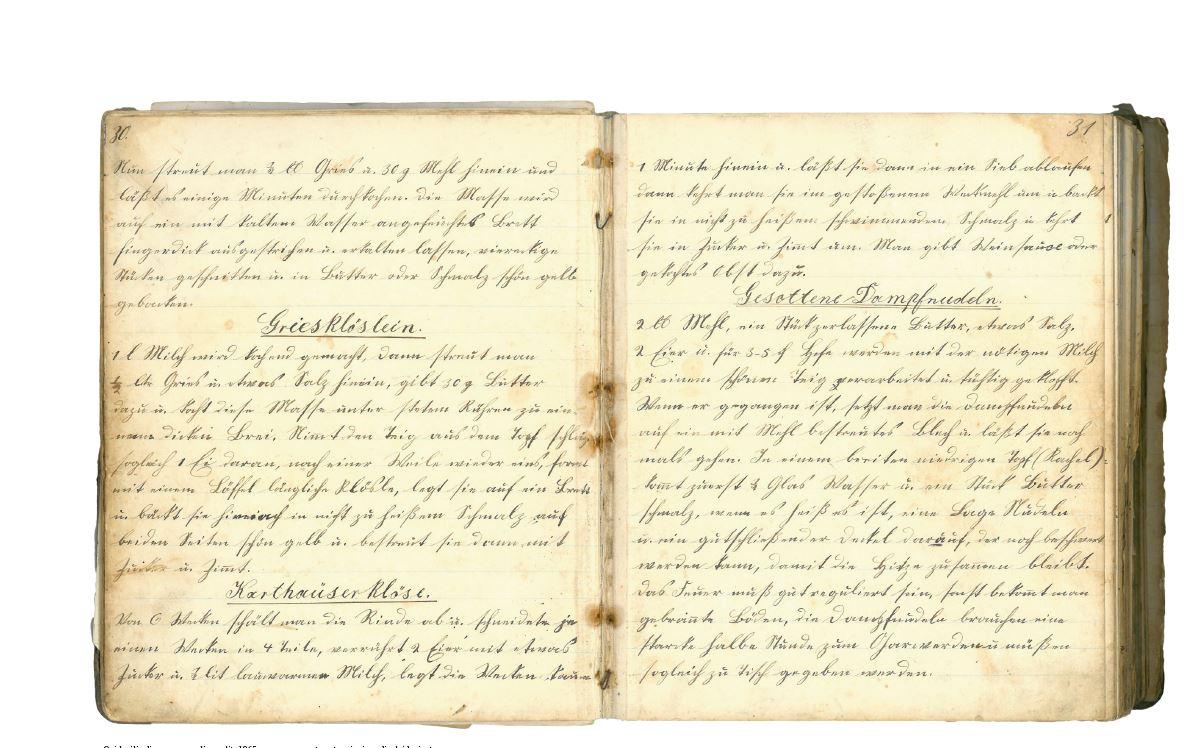 30.
Nun streut man ½ ℔ Gries u. 30 g Mehl hinein und
läßt es einige Minuten durchkochen. Die Masse wird
auf ein mit kaltem Wasser angefeuchtes Brett
fingerdick ausgestrichen u. erkalten lassen, viereckige
Stücken geschnitten u. in Butter oder Schmalz schön gelb
gebacken.
Griesklöslein.
1 l Milch wird kochend gemacht, dann streut man
Gries u. etwas Salz hinein, gibt 30 g Butter
dazu u. kocht diese Masse unter stetem Rühren zu ein-
dicken Brei. Nimt den Teig aus dem Topf schlägt
sogleich 1 Ei daran, nach einer Weile wieder eins, formt
mit einem Löffel längliche Klösle, legt sie auf ein Brett
u. bäckt sie hernach in nicht zu heißem Schmalz auf
beiden Seiten schön gelb u. bestreut sie dann mit
Zucker u. Zimt.
Karthäuserklöse.
Von 6 Wecken schält man die Rinde ab u. schneidete je
einen Wecken in 4 Teile, verrührt 2 Eier mit etwas
Zucker u. ½ lit lauwarmen Milch, legt die Wecken kaum
31
1 Minute hinein u. läßt sie dann in ein Sieb ablaufen
dann kehrt man sie im gestoßenem Weckmehl um u. backt
sie in nicht zu heißem schwimmendem Schmalz u. kehrt
sie in Zucker u. Zimt um. Man gibt Weinsauce oder
gekochtes Obst dazu.
Gesottene Dampfnudeln.
2 ℔ Mehl, ein Stück zerlassene Butter, etwas Salz,
2 Eier u. für 3-5 ₰ Hefe werden mit der nötigen Milch
zu einem schönen Teig verarbeitet u. tüchtig geklopft.
Wenn er gegangen ist, setzt man die Dampfnudeln
auf ein mit Mehl bestreutes Blech u. läßt sie noch
mals gehen. In einem breiten niedrigen Topf (Kachel)
komt zuerst ½ Glas Wasser u. ein Stück Butter
schmalz, wenn es heiß es ist, eine Lage Nudeln
u. ein gutschließender Deckel darauf, der noch beschwert
werden kann, damit die Hitze zusamen bleibt.
Das Feuer muß gut reguliert sein, sonst bekomt man
gebrannte Böden, die Dampfnudeln brauchen eine
starke halbe Stunde zum Garwerden u. müßen
sogleich zu Tisch gegeben werden.